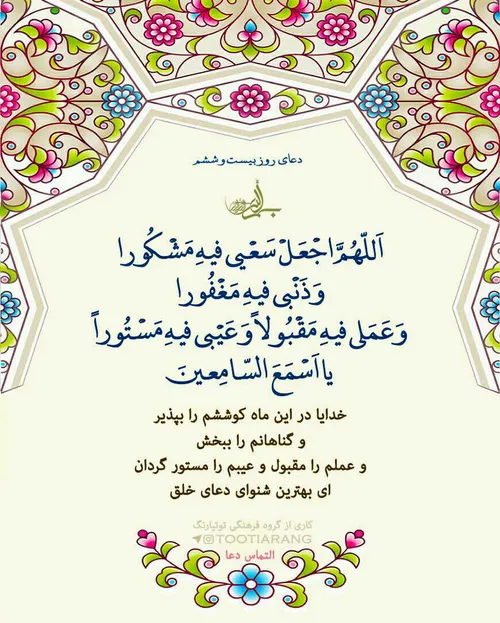 دعای روز بیست و ششم
اَللّهُمَّ اجْعَلْ سَعْیی فیهِ مَشْکُورا
وَ ذَنْبی فیهِ مَغْفُورا
وَ عَمَلی فیهِ مَقْبُولاً وَ عَیْبی فیهِ مَسْتُوراً
یا اَسْمَعَ السّامِعینَ
خدایا در این ماه کوششم را بپذیر
و گناهانم را ببخش
و عملم را مقبول و عیبم را مستور گردان
ای بهترین شنوای دعای خلق
کاری از گروه فرهنگی توتیارنگ
@TOOTIARANG
التماس دعا